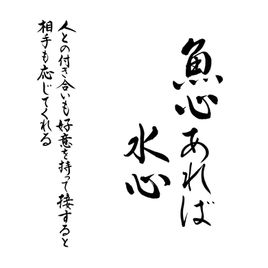 魚心あれば
水心
人との付き合いも好意を持って接すると
相手も応じてくれる